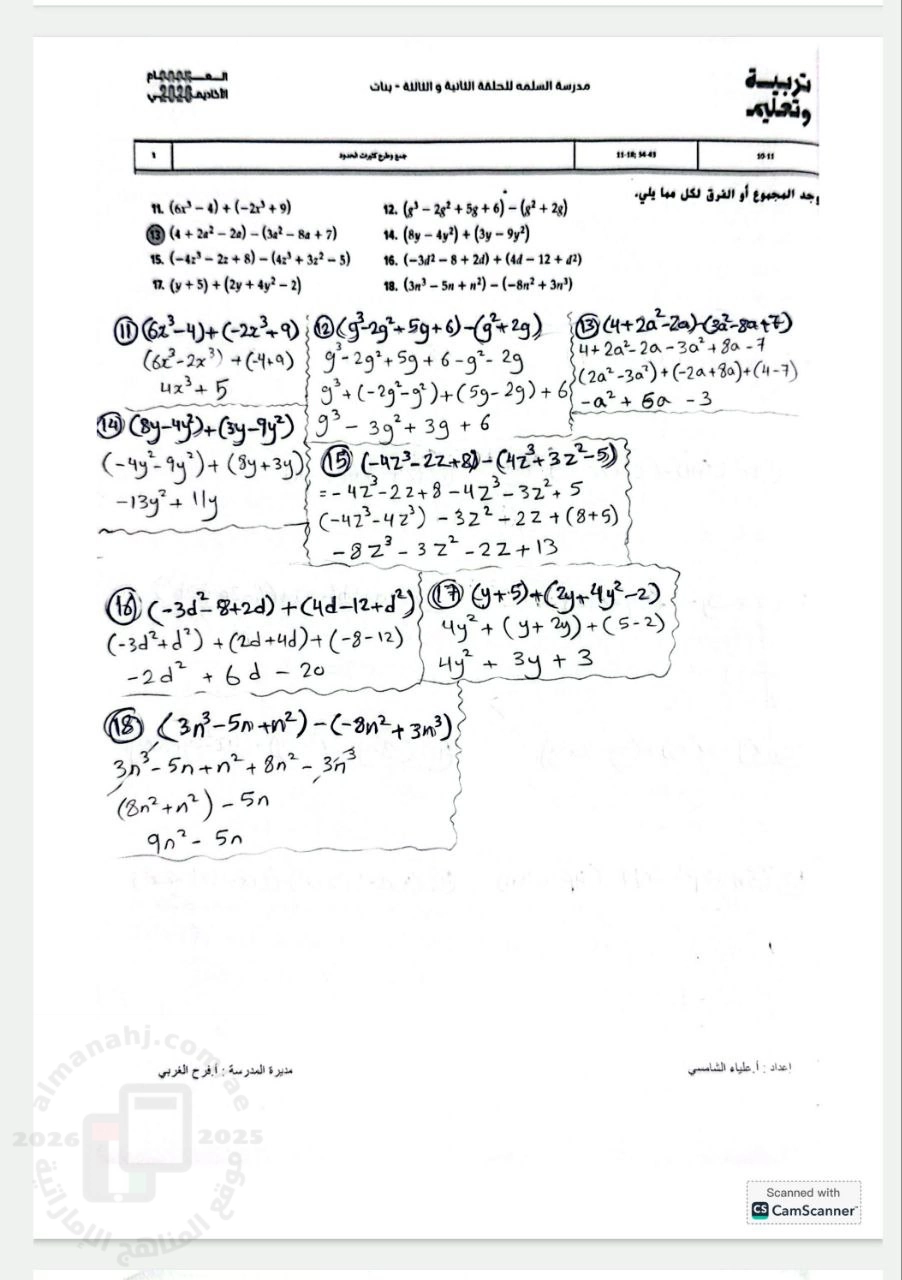 تربية وتعليم
مدرسة السلمه للحلقة الثانية و الثالثة - بنات
العـــــام
الأكاديمي
10-11
11-18; 34-43
جمع وطرح كثيرات الحدود
1
جد المجموع أو الفرق لكل مما يلي.
11. (6x³ − 4) + (−2x³ + 9)
12. (g³ − 2g² + 5g + 6) − (g² + 2g)
13 (4 + 2a² − 2a) − (3a² − 8a + 7)
14. (8y − 4y²) + (3y − 9y²)
15. (−4z³ − 2z + 8) − (4z³ + 3z² − 5)
16. (−3d² − 8 + 2d) + (4d − 12 + d²)
17. (y + 5) + (2y + 4y² − 2)
18. (3n³ − 5n + n²) − (−8n² + 3n³)
11 (6x³-4)+(-2x³+9)
(6x³-2x³) + (-4+9)
4x³ + 5
12 (g³-2g²+5g+6)-(g²+2g)
g³-2g²+5g+6-g²-2g
g³+(-2g²-g²)+(5g-2g)+6
g³ - 3g² + 3g + 6
13 (4+2a²-2a)-(3a²-8a+7)
4+2a²-2a-3a²+8a-7
(2a²-3a²)+(-2a+8a)+(4-7)
-a² + 6a - 3
14 (8y-4y²)+(3y-9y²)
(-4y²-9y²)+(8y+3y)
-13y²+11y
15 (-4z³-2z+8)-(4z³+3z²-5)
= -4z³-2z+8-4z³-3z²+5
(-4z³-4z³) -3z²-2z+(8+5)
-8z³-3z²-2z+13
16 (-3d²-8+2d)+(4d-12+d²)
(-3d²+d²)+(2d+4d)+(-8-12)
-2d² + 6d - 20
17 (y+5)+(2y+4y²-2)
4y²+(y+2y)+(5-2)
4y² + 3y + 3
18 (3n³-5n+n²)-(-8n²+3n³)
3n³-5n+n²+8n²-3n³
(8n²+n²)-5n
9n²-5n
إعداد : أ.علياء الشامسي
مديرة المدرسة : أ.فرح الغربي
almanahj.com/ae
2026 2025
موقع المناهج الإماراتية
Scanned with
CS CamScanner